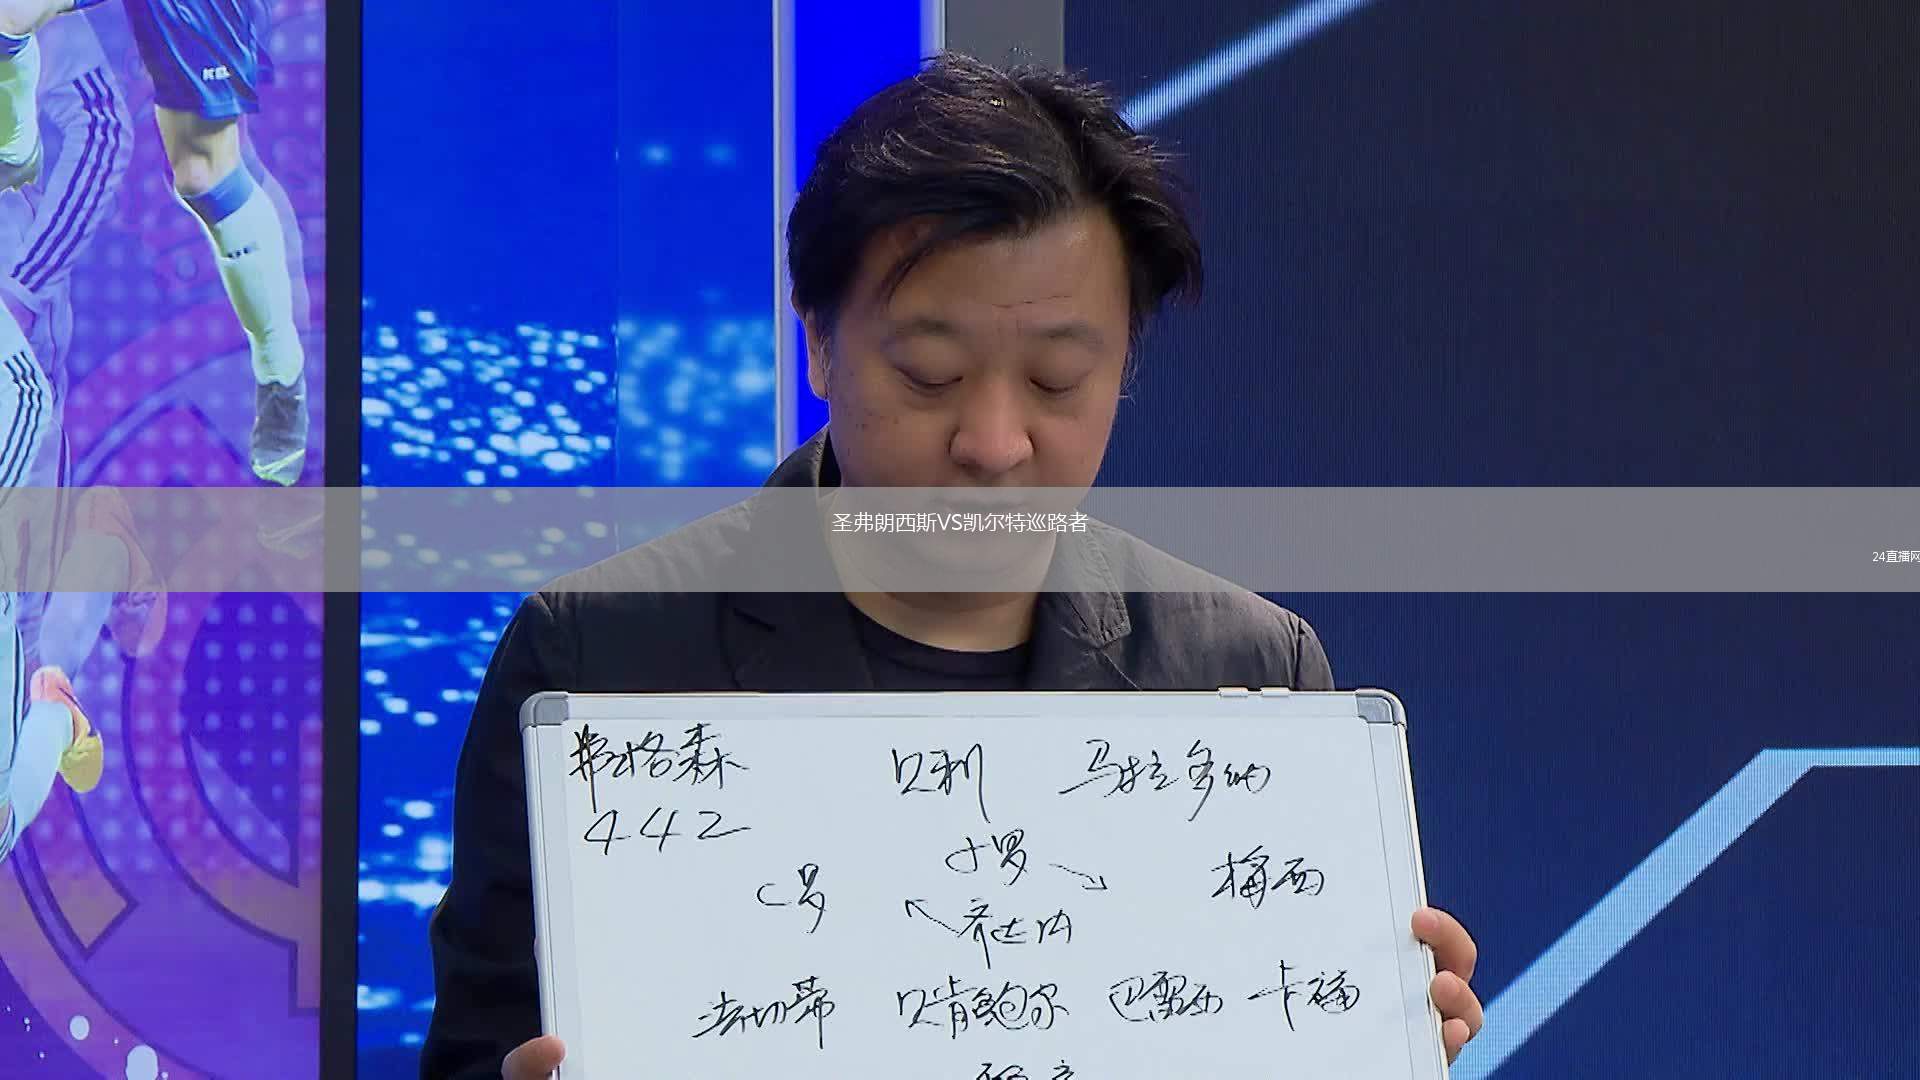 圣弗朗西斯VS凯尔特巡路者
24直播网
弗格森 贝利 马拉多纳
442
小罗
C罗 梅西
齐达内
法切蒂 贝肯鲍尔 巴雷西 卡福